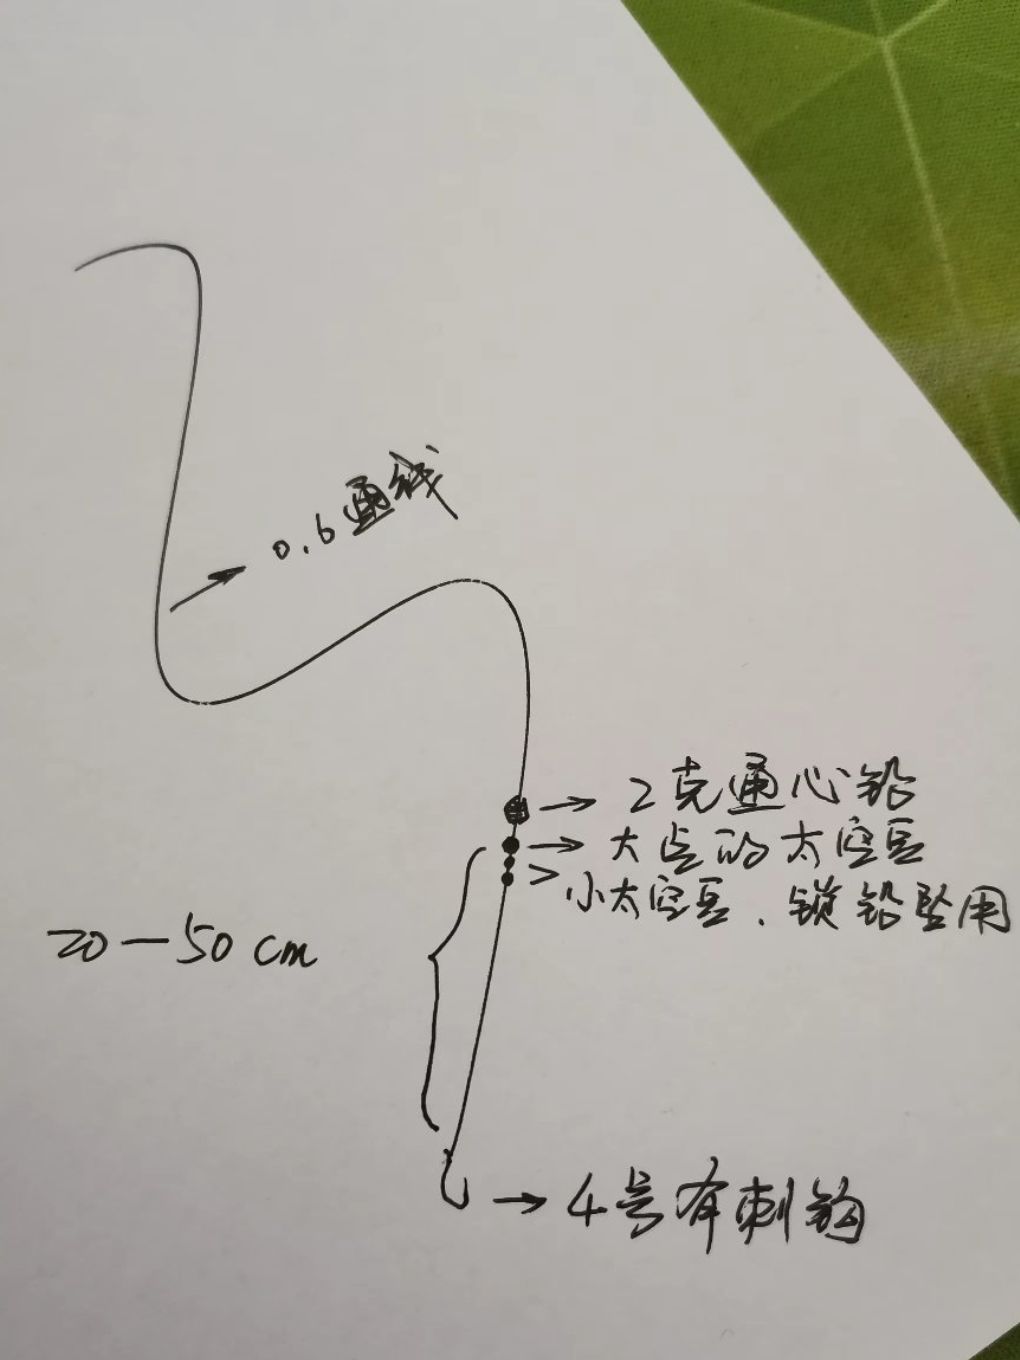 0.6通线
2克通心铅
大点的太空豆
小太空豆、锁铅坠用
20—50cm
4号有刺钩